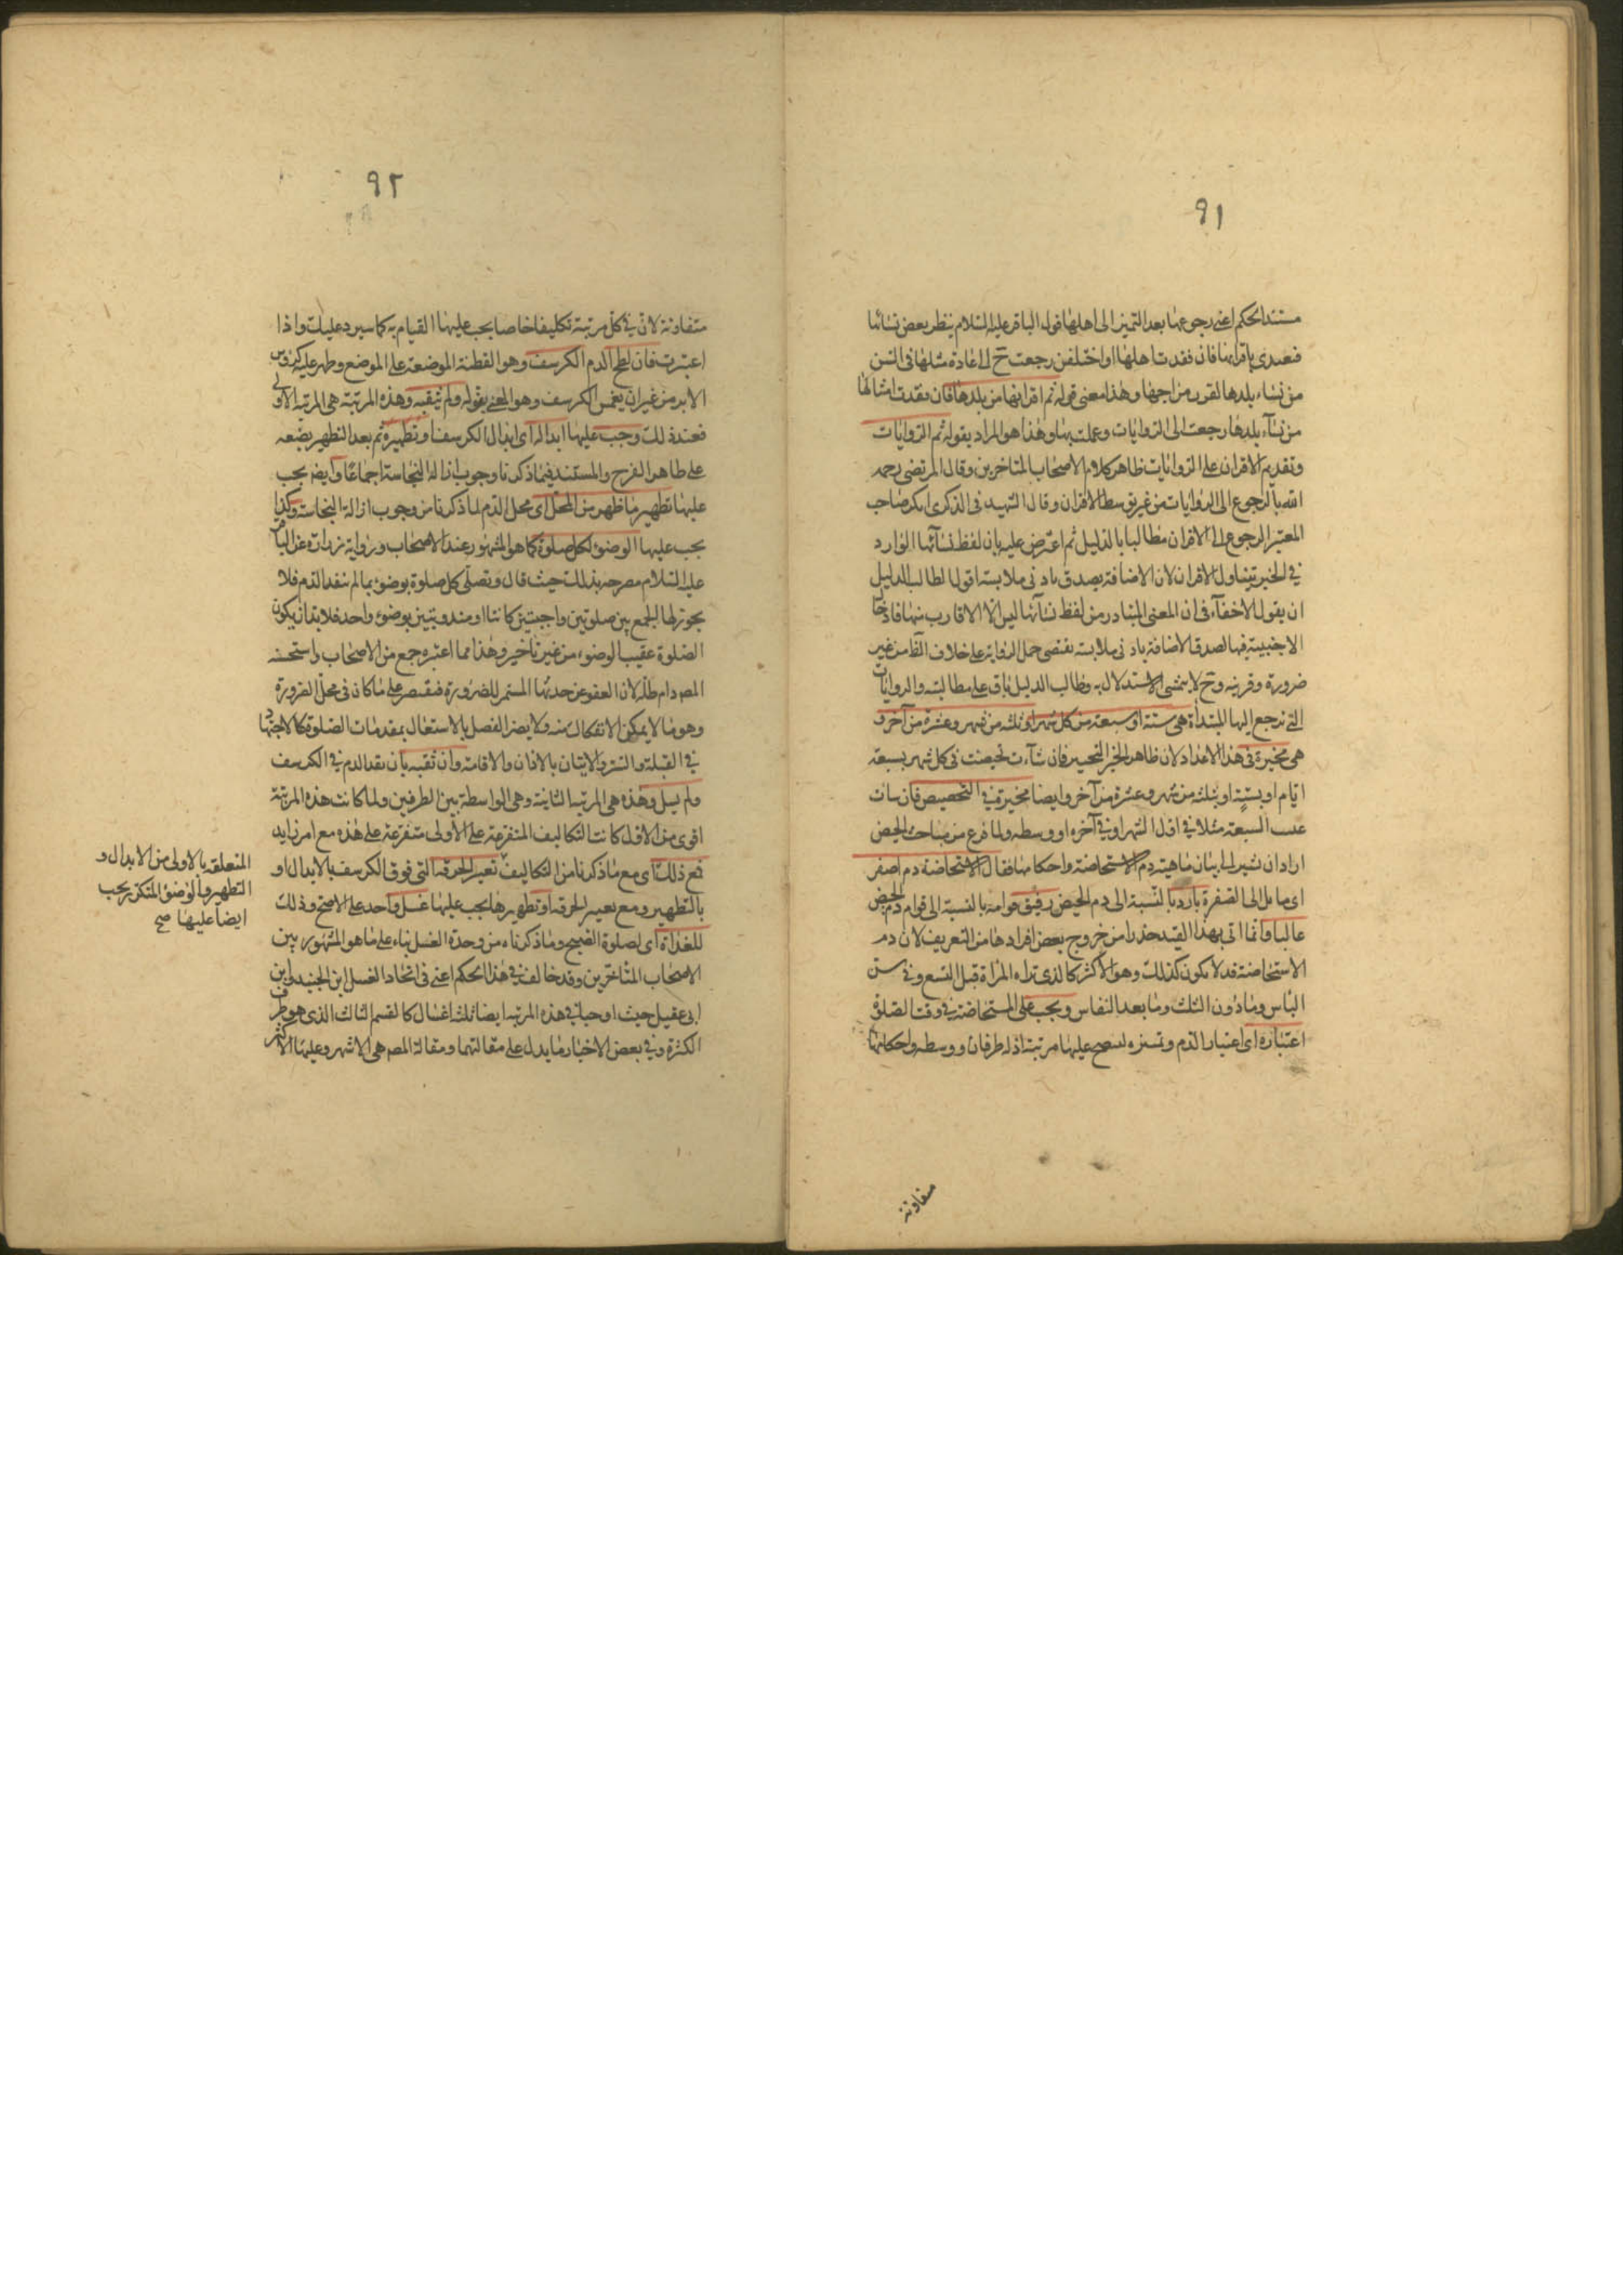 ٩١
مستند الحكم اعنى رجوعها بعد التميز الى اهلها قول الباقر عليه السلام ينظر بعض نسائها
فتعتدى باقرائها فان فقدت اهلها او اختلفن رجعت ح الى عادة مثلها فى السن
من نساء بلدها لقرب مزاجها وهذا معنى قوله ثم اقرانها من بلدها فان فقدت امثالها
من نسآء بلدها رجعت الى الروايات وعملت بها وهذا هو المراد بقوله ثم الروايات
وتقديم الاقران على الروايات ظاهر كلام الاصحاب المتاخرين وقال المرتضى رحمه
الله بالرجوع الى الروايات من غير توسط الاقران وقال الشهيد فى الذكرى انكر صاحب
المعتبر الرجوع الى الاقران مطالبا بالدليل ثم اعترض عليه بان لفظ نسآئها الوارد
فى الخبر يتناول الاقران لان الاضافة يصدق بادنى ملابسة اقول لطالب الدليل
ان يقول لا خفآء فى ان المعنى المتبادر من لفظ نسآئها ليس الا الاقارب منها فادخال
الاجنبية فيها لصدق الاضافة بادنى ملابسة يقتضى حمل الرواية على خلاف الظ من غير
ضرورة وقرينه وح لا يتمشى الاستدلال به وطالب الدليل باق على مطالبته والروايات
التى ترجع اليها المبتدأة هى ستة او سبعة من كل شهر او ثلثه من شهر وعشرة من آخر و
هى مخيرة فى هذا الاعداد لان ظاهر الخبر التخيير فان شآءت تحيضت فى كل شهر بسبعة
ايام او بستة او بثلثه من شهر وعشرة من آخر وايضا مخيرة فى التخصيص فان شات
السبعة مثلا فى اول الشهر او فى آخره او وسطه ولما فرغ من مباحث الحيض
اراد ان يشير الى بيان ماهية دم الاستحاضة واحكامها فقال الاستحاضة دم اصفر
اى مايل الى الصفرة بارد بالنسبة الى دم الحيض رقيق قوامه بالنسبة الى قوام دم الحيض
غالبا وانما اتى بهذا القيد حذرا من خروج بعض افرادها من التعريف لان دم
الاستحاضة قد لا يكون كذلك وهو الاكثر كالذى تراه المرأة قبل التسع وفى سن
الياس وما دون الثلث وما بعد النفاس ويجب على المستحاضة فى وقت الصلوة
اعتباره اى اعتبار الدم عليها مرتبة اذ له طرفان ووسطه واحكامها
متفاوتة
٩٢
متفاوتة لان فى كل مرتبة تكليفا خاصا يجب عليها القيام به كما سيرد عليك واذا
اعتبرت فان لطخ الدم الكرسف وهو القطنة الموضعة على الموضع وظهر عليه كرؤس
الابر من غير ان يغمس الكرسف وهو المعنى بقوله ولم يثقبه وهذه المرتبة هى المرتبة الاولى
فعند ذلك وجب عليها ابداله اى ابدال الكرسف او تطهيره ثم بعد التطهير يضعه
على ظاهر الفرج والمستند فيما ذكرنا وجوب ازالة النجاسة اجماعا وايضا يجب
عليها تطهير ما ظهر من المحل اى محل الدم لما ذكرنا من وجوب ازالة النجاسة وكذا
يجب عليها الوضوء لكل صلوة كما هو المشهور عند الاصحاب ورواية زرارة عن الباقر
عليه السلام مصرحه بذلك حيث قال وتصلى كل صلوة بوضوء ما لم ينفد الدم فلا
يجوز لها الجمع بين صلوتين واجبتين كانتا او مندوبتين بوضوء واحد فلا بد ان يكون
الصلوة عقيب الوضوء من غير تاخير وهذا مما اعتبره جمع من الاصحاب واستحسنه
المص دام ظله لان العفو عن حدثها المستمر للضرورة فيقتصر على ما كان فى محل الضرورة
وهو ما لا يمكن الانفكاك منه ولا يضر الفصل بالاستعال بمقدمات الصلوة كالاجتهاد
فى القبلة والستر والاتيان بالاذان والاقامة وان ثقبه بان نفد الدم فى الكرسف
ولم يسل وهذه هى المرتبة الثانية وهى الواسطة بين الطرفين ولما كانت هذه المرتبة
اقوى من الاول كانت التكاليف المتفرعة على الاولى متفرعة على هذه مع امر زايد
فمع ذلك اى مع ما ذكرنا من التكاليف تغيير الخرقة التى فوق الكرسف بالابدال او
بالتطهير ومع تغيير الخرقه او تطهيرها يجب عليها غسل واحد على الاصح وذلك
للغداة اى لصلوة الصبح وما ذكرناه من وحدة الغسل بناء على ما هو المشهور بين
الاصحاب المتاخرين وقد خالف فى هذا الحكم اعنى فى اتحاد الغسل ابن الجنيد وابن
ابى عقيل حيث اوجبا فى هذه المرتبة ايضا ثلثة اغسال كالقسم الثالث الذى هو طرف
الكثرة وفى بعض الاخبار ما يدل على مقالتهما ومقالة المص هى الاشهر وعليها الاكثر
المتعلقه بالاولى من الابدال و
التطهير والوضوء المتكرر يجب
ايضا عليها صح